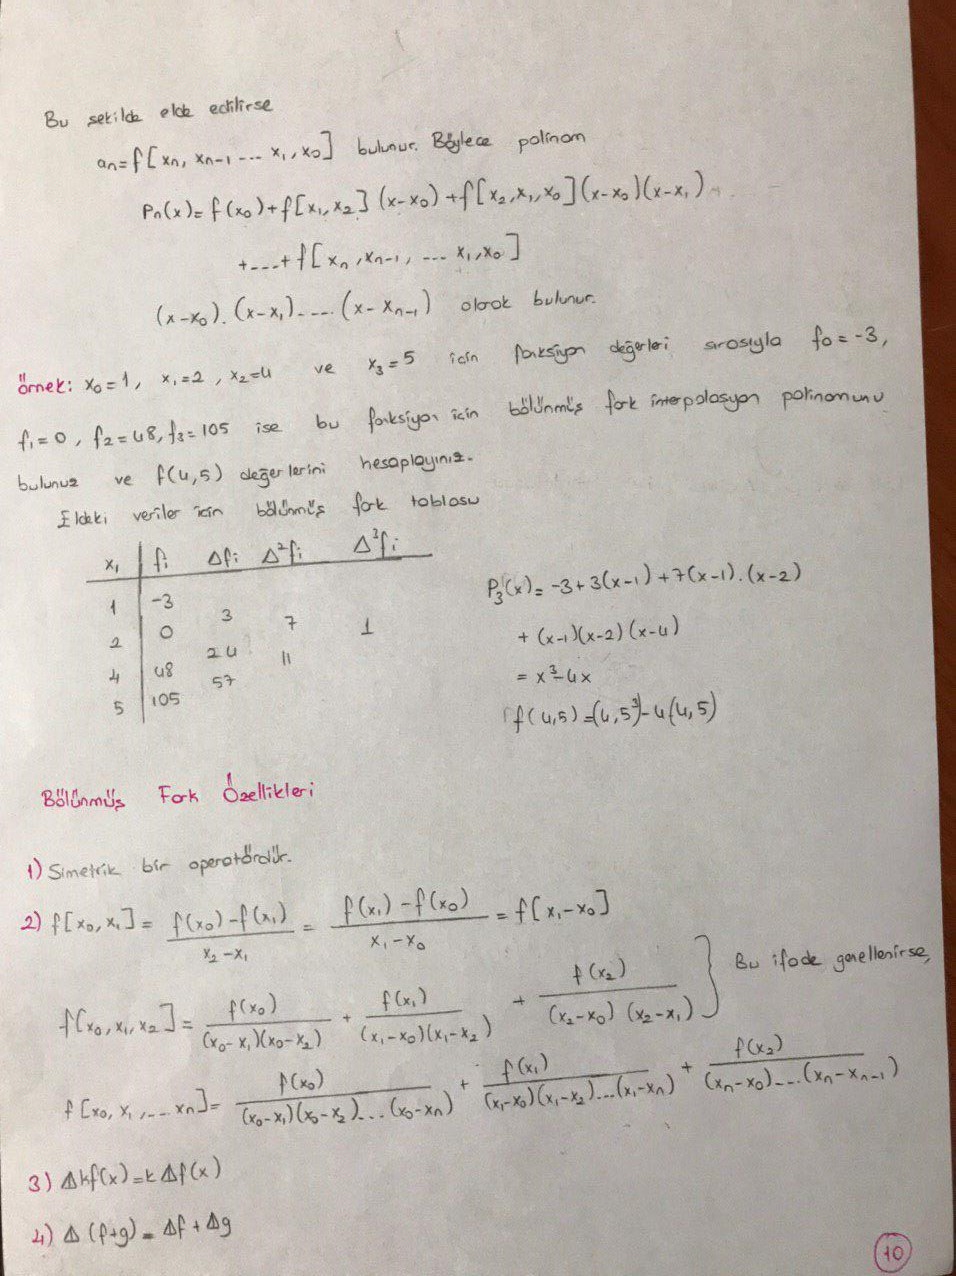 Bu şekilde elde edilirse
an=f[xn, xn-1 --- x1, x0] bulunur. Böylece polinom
Pn(x)= f(x0)+f[x1,x2](x-x0)+f[x2,x1,x0](x-x0)(x-x1)
+---+ f[xn, xn-1, --- x1,x0]
(x-x0).(x-x1)---- (x-xn-1) olarak bulunur.
örnek: x0=1, x1=2, x2=4 ve x3=5 için fonksiyon değerleri sırasıyla f0=-3,
f1=0, f2=48, f3=105 ise bu fonksiyon için bölünmüş fark interpolasyon polinomunu
bulunuz ve f(4,5) değerlerini hesaplayınız.
Eldeki veriler için bölünmüş fark tablosu
x1 fi Δfi Δ²fi Δ³fi
1 -3
3 7 1
2 0
24 11
4 48
57
5 105
P3(x)= -3+3(x-1)+7(x-1).(x-2)
+ (x-1)(x-2)(x-4)
= x³-4x
f(4,5)=(4,5³)-4(4,5)
Bölünmüş Fark Özellikleri
1) Simetrik bir operatördür.
2) f[x0,x1]= f(x0)-f(x1) / x2-x1 = f(x1)-f(x0) / x1-x0 = f[x1-x0]
f[x0,x1,x2]= f(x0) / (x0-x1)(x0-x2) + f(x1) / (x1-x0)(x1-x2) + f(x2) / (x2-x0)(x2-x1) } Bu ifade genellenirse,
f[x0, x1,---xn]= f(x0) / (x0-x1)(x0-x2)---(x0-xn) + f(x1) / (x1-x0)(x1-x2)---(x1-xn) + f(x2) / (xn-x0)----(xn-xn-1)
3) Δkf(x)=kΔf(x)
4) Δ(f+g)=Δf+Δg
10